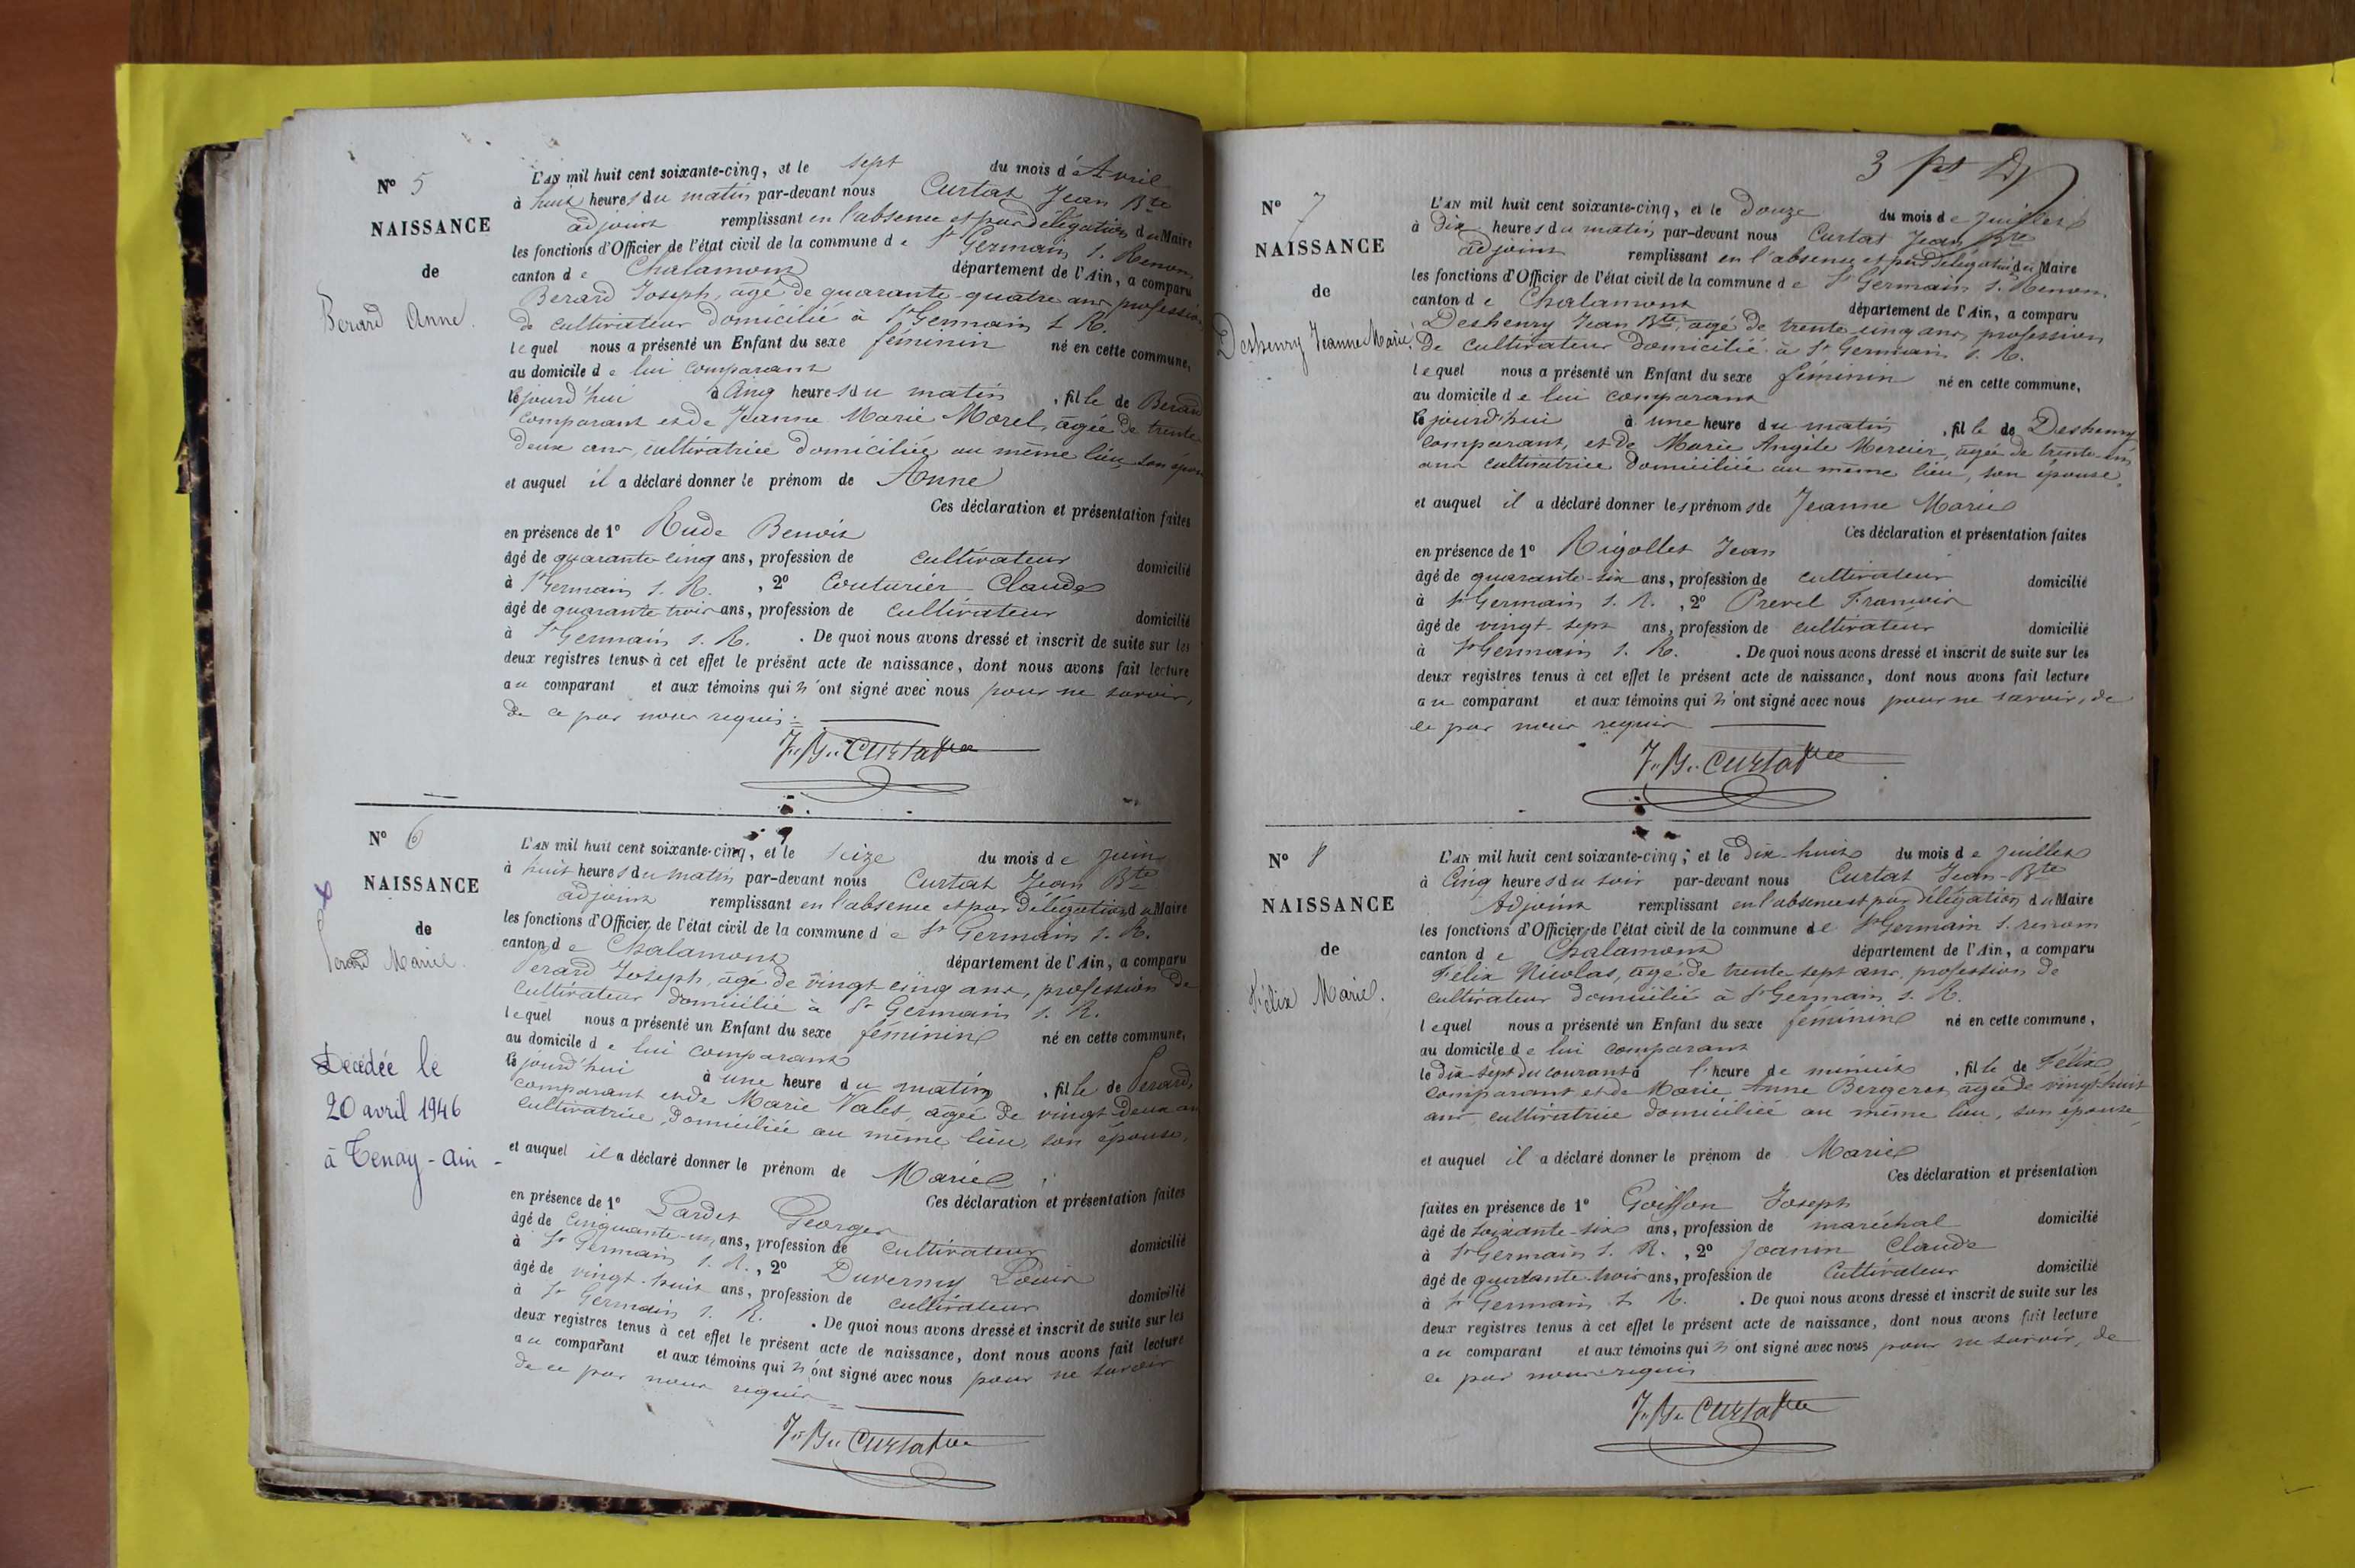 N° 5
NAISSANCE
de
Berard Anne.
L'AN mil huit cent soixante-cinq, et le sept du mois d'Avril
à huit heures du matin par-devant nous Curtat Jean Bte
adjoint remplissant en l'absence et par délégation du Maire
les fonctions d'Officier de l'état civil de la commune de St Germain s. Renon
canton de Chalamont département de l'Ain, a comparu
Berard Joseph, âgé de quarante-quatre ans profession
de cultivateur domicilié à St Germain s. R.
lequel nous a présenté un Enfant du sexe féminin né en cette commune,
au domicile de lui comparant
le jourd'hui à Cinq heures du matin, fille de Berard
comparant et de Jeanne Marie Morel, âgée de trente
deux ans, cultivatrice domiciliée au même lieu, son épouse
et auquel il a déclaré donner le prénom de Anne
Ces déclaration et présentation faites
en présence de 1° Rude Benoit
âgé de quarante-cinq ans, profession de cultivateur domicilié
à St Germain s. R., 2° Couturier Claude
âgé de quarante trois ans, profession de cultivateur domicilié
à St Germain s. R. . De quoi nous avons dressé et inscrit de suite sur les
deux registres tenus à cet effet le présent acte de naissance, dont nous avons fait lecture
au comparant et aux témoins qui n'ont signé avec nous pour ne savoir,
de ce par nous requis.
J. B. Curtat
N° 6
NAISSANCE
de
Perard Marie.
Décédée le
20 avril 1946
à Tenay - Ain -
L'AN mil huit cent soixante-cinq, et le seize du mois de Juin
à huit heures du matin par-devant nous Curtat Jean Bte
adjoint remplissant en l'absence et par délégation du Maire
les fonctions d'Officier de l'état civil de la commune de St Germain s. R.
canton de Chalamont département de l'Ain, a comparu
Perard Joseph, âgé de vingt cinq ans, profession de
cultivateur domicilié à St Germain s. R.
lequel nous a présenté un Enfant du sexe féminin né en cette commune,
au domicile de lui comparant
le jourd'hui à une heure du matin, fille de Perard
comparant et de Marie Valet, âgée de vingt deux ans
cultivatrice, domiciliée au même lieu, son épouse,
et auquel il a déclaré donner le prénom de Marie
Ces déclaration et présentation faites
en présence de 1° Lardet Georges
âgé de cinquante-un ans, profession de cultivateur domicilié
à St Germain s. R., 2° Duverney Louis
âgé de vingt-huit ans, profession de cultivateur domicilié
à St Germain s. R. . De quoi nous avons dressé et inscrit de suite sur les
deux registres tenus à cet effet le présent acte de naissance, dont nous avons fait lecture
au comparant et aux témoins qui n'ont signé avec nous pour ne savoir
de ce par nous requis
J. B. Curtat
3
N° 7
NAISSANCE
de
Deshenry Jeanne Marie.
L'AN mil huit cent soixante-cinq, et le Douze du mois de Juillet
à Dix heures du matin par-devant nous Curtat Jean Bte
adjoint remplissant en l'absence et par délégation du Maire
les fonctions d'Officier de l'état civil de la commune de St Germain s. Renon.
canton de Chalamont département de l'Ain, a comparu
Deshenry Jean Bte, âgé de trente cinq ans, profession
de cultivateur domicilié à St Germain s. R.
lequel nous a présenté un Enfant du sexe féminin né en cette commune,
au domicile de lui comparant
le jourd'hui à une heure du matin, fille de Deshenry
comparant, et de Marie Angèle Mercier, âgée de trente-un
ans cultivatrice domiciliée au même lieu, son épouse,
et auquel il a déclaré donner les prénoms de Jeanne Marie
Ces déclaration et présentation faites
en présence de 1° Rigollet Jean
âgé de quarante-six ans, profession de cultivateur domicilié
à St Germain s. R., 2° Prevel François
âgé de vingt-sept ans, profession de cultivateur domicilié
à St Germain s. R. . De quoi nous avons dressé et inscrit de suite sur les
deux registres tenus à cet effet le présent acte de naissance, dont nous avons fait lecture
au comparant et aux témoins qui n'ont signé avec nous pour ne savoir, de
ce par nous requis
J. B. Curtat
N° 8
NAISSANCE
de
Félix Marie.
L'AN mil huit cent soixante-cinq, et le Dix-huit du mois de Juillet
à Cinq heures du soir par-devant nous Curtat Jean-Bte
Adjoint remplissant en l'absence et par délégation du Maire
les fonctions d'Officier de l'état civil de la commune de St Germain s. renom
canton de Chalamont département de l'Ain, a comparu
Félix Nicolas, âgé de trente sept ans, profession de
cultivateur domicilié à St Germain s. R.
lequel nous a présenté un Enfant du sexe féminin né en cette commune,
au domicile de lui comparant
le dix-sept du courant à l'heure de minuit, fille de Félix
comparant, et de Marie Anne Bergeret, âgée de vingt-huit
ans, cultivatrice domiciliée au même lieu, son épouse,
et auquel il a déclaré donner le prénom de Marie
Ces déclaration et présentation
faites en présence de 1° Goiffon Joseph
âgé de soixante-six ans, profession de maréchal domicilié
à St Germain s. R., 2° Joanin Claude
âgé de quarante-trois ans, profession de Cultivateur domicilié
à St Germain s. R. . De quoi nous avons dressé et inscrit de suite sur les
deux registres tenus à cet effet le présent acte de naissance, dont nous avons fait lecture
au comparant et aux témoins qui n'ont signé avec nous pour ne savoir, de
ce par nous requis
J. B. Curtat